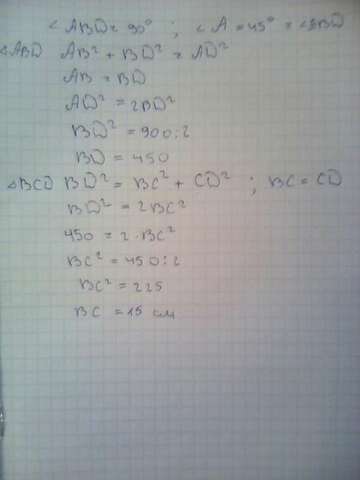 ∠ABD = 90° ; ∠A = 45° = ∠BD
∠ABD AB² + BD² = AD²
AB = BD
AD² = 2BD²
BD² = 900:2
BD = 450
△BCD BD² = BC² + CD² ; BC = CD
BD² = 2BC²
450 = 2·BC²
BC² = 450:2
BC² = 225
BC = 15 см